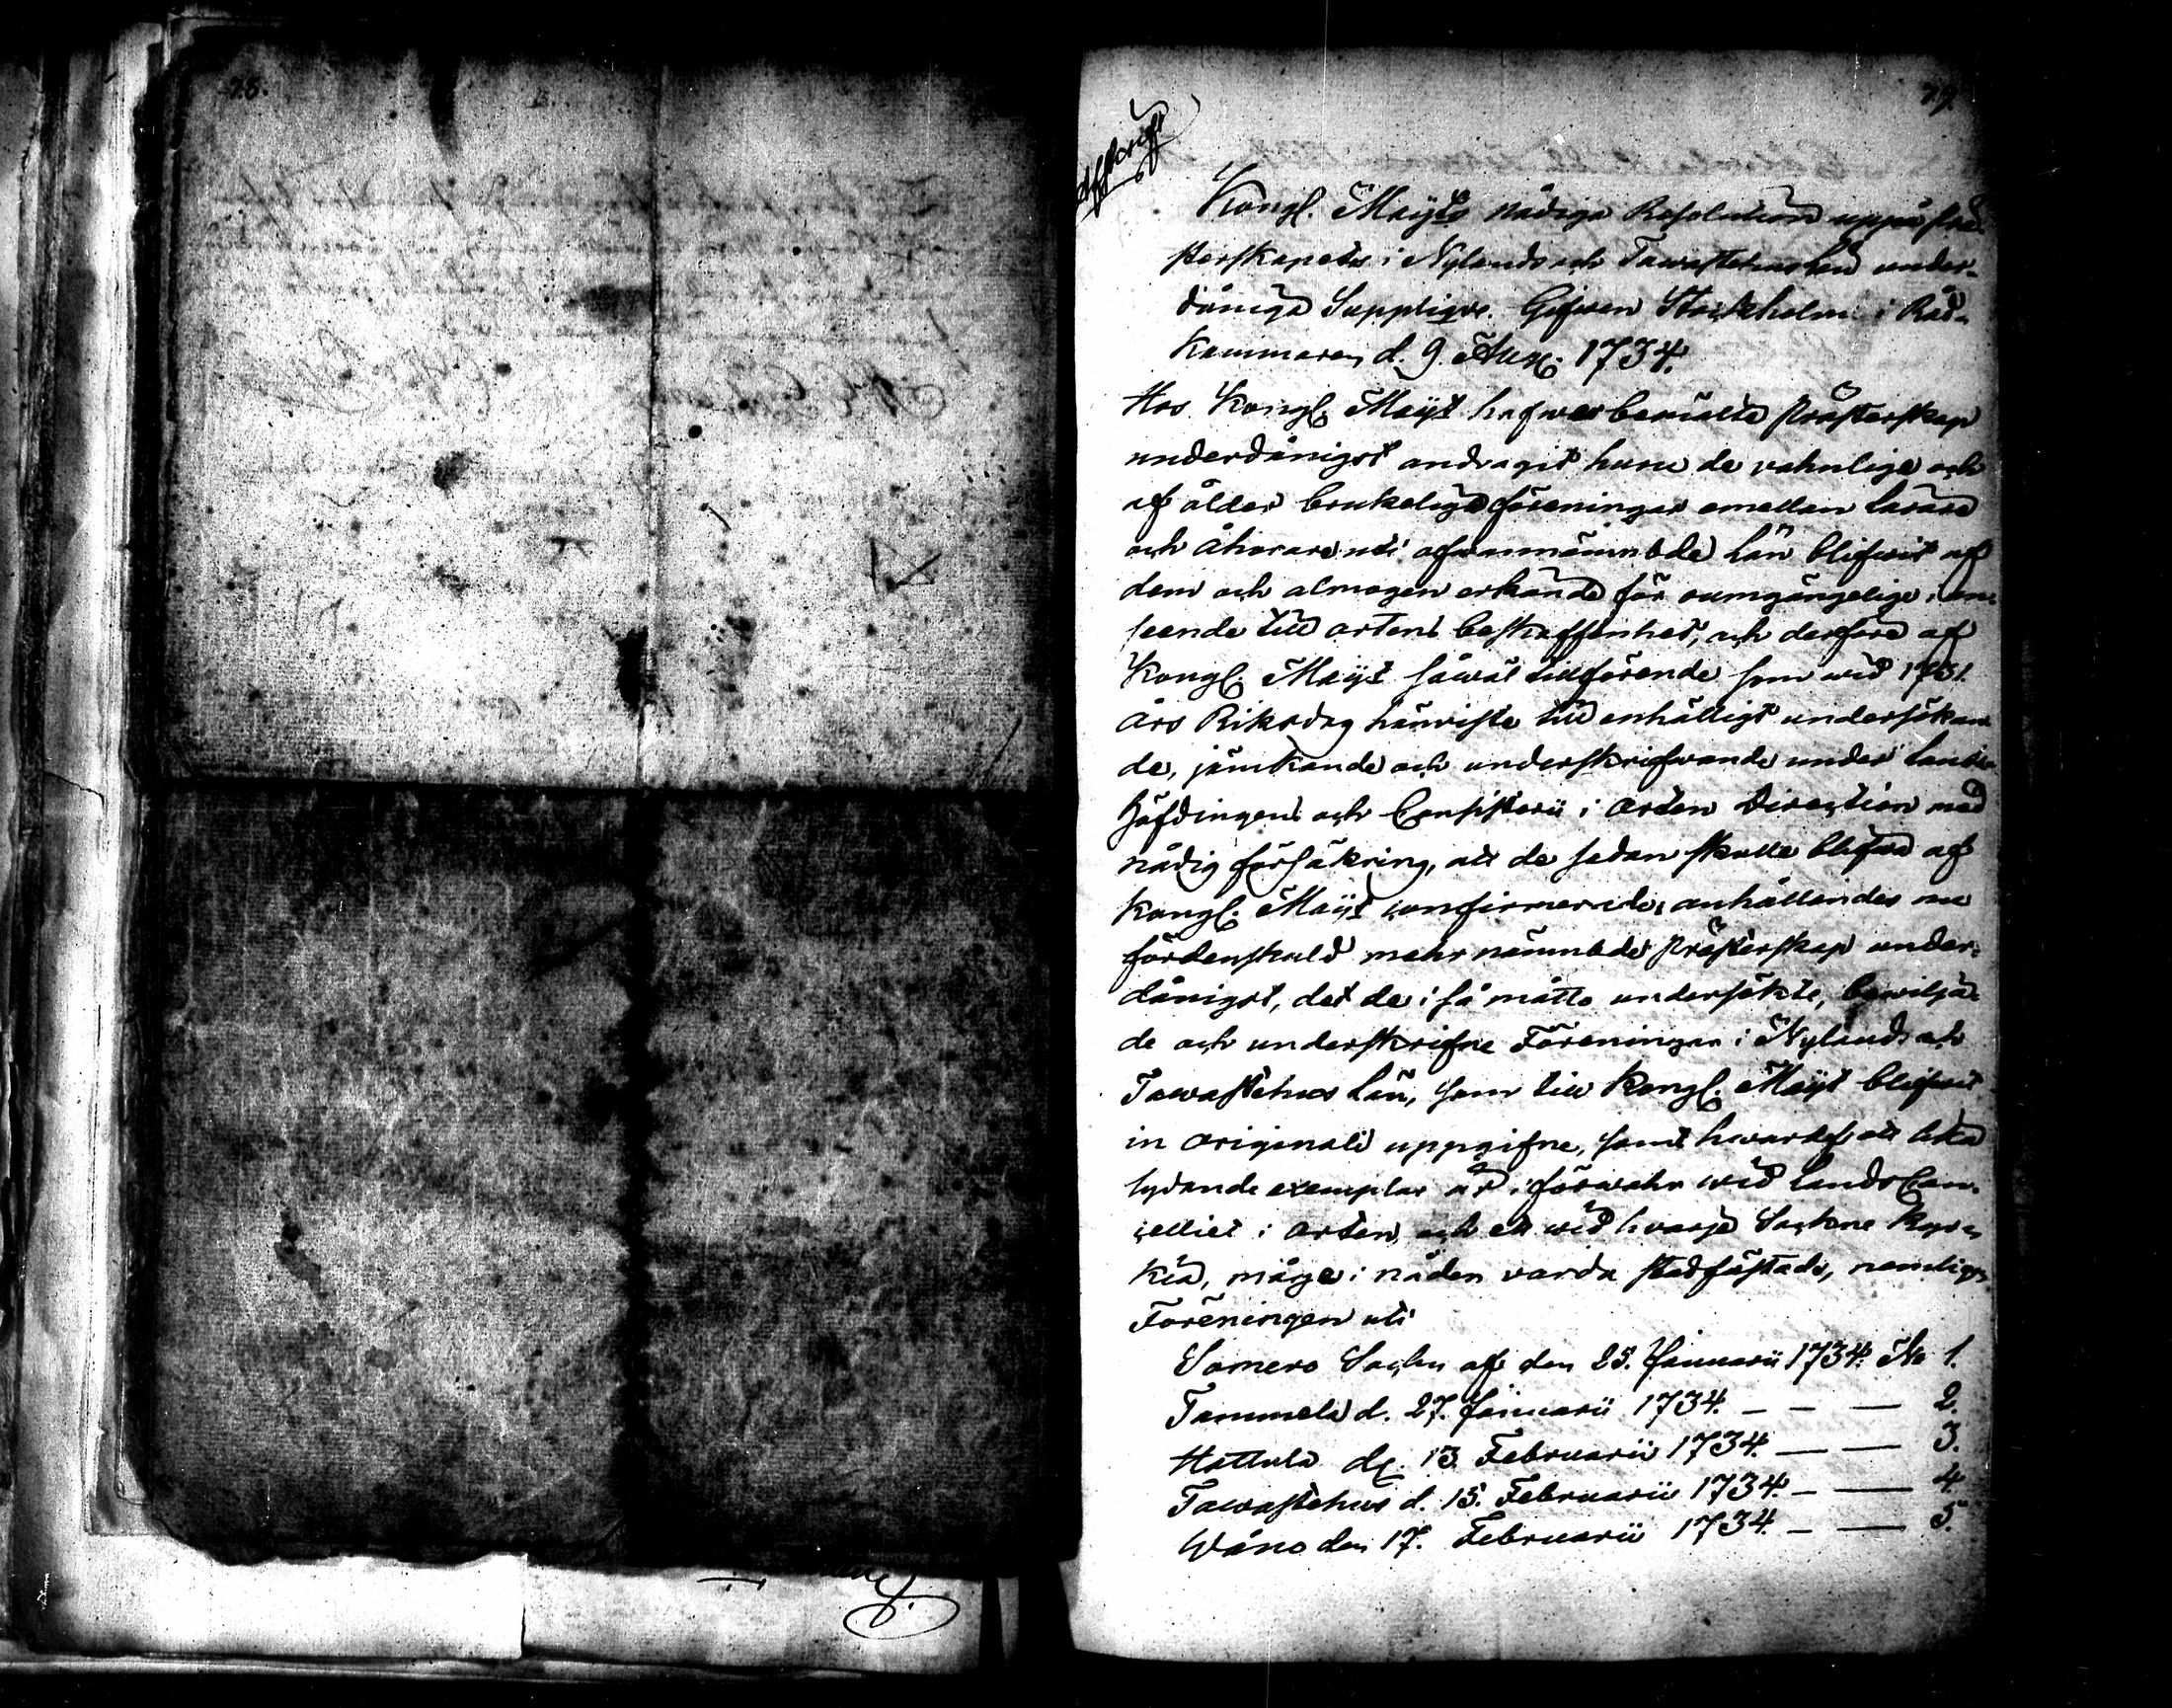 78.
79.
Affskrifft
Kongl. Maÿts nådiga Resolution uppå prä-
sterskapets i Nylands och Tawastehus Län under-
dåniga Supplique. Gifwen Stockholm i Råd-
Kammaren d. 9. Aug. 1734.
Hos Kongl. Maÿt hafwer bemälte Prästerskap
underdånigst andragit huru de vahnlige och
af ålder brukelige föreningar emellan Lärare
och åhörare uti ofwannämnbde Län blifwit af
dem och almogen erkände för oumgängelige, i an-
seende till ortens beskaffenhet, och derföre af
Kongl. Maÿt såwäl tillförende som wid 1731
års Riksdag hänwiste till enhälligt undersökan-
de, jämkande och underskrifwande under Lands-
höfdingens och Consistorii i orten Direction med
nådig försäkring, att de sedan skulle blifwa af
Kongl. Maÿt confirmerade, anhållandes nu
fördenskuld mehrnämnbde Prästerskap under-
dånigst, det de i så måtto undersökte, bewilja-
de och underskrifne Föreningar i Nylands och
Tawastehus Län, som till Kongl. Maÿt blifwit
in originali uppgifne, samt hwaraf ett lika
lydande exemplar är i förwahr wid Lands Can-
celliet i orten, och ett wid hvarje Sockne Kyr-
kia, måge i nåder varda stadfästade, nemligen
Föreningen uti
Somero Sochn af den 25. Januarii 1734. No 1.
Tammela d. 27. Januarii 1734. — — — 2.
Hattula d. 13. Februarii 1734. — — 3.
Tawastehus d. 15. Februarii 1734. — — 4.
Wåno den 17. Februarii 1734. — — 5.